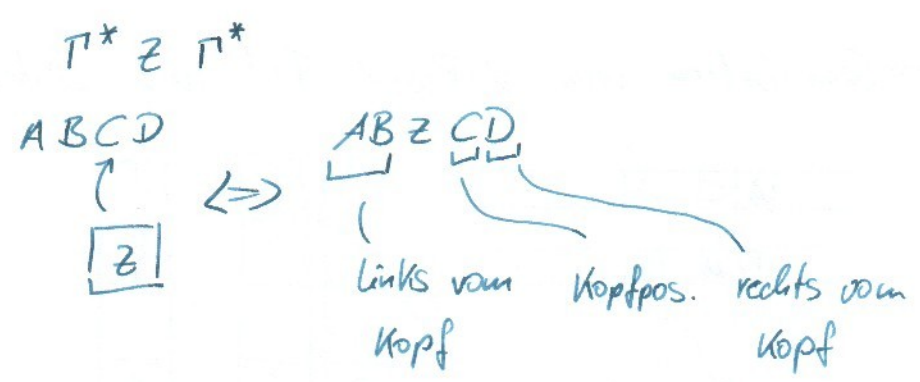 Γ* z Γ*
ABCD
z
<=>
AB z CD
links vom Kopf
Kopfpos.
rechts vom Kopf